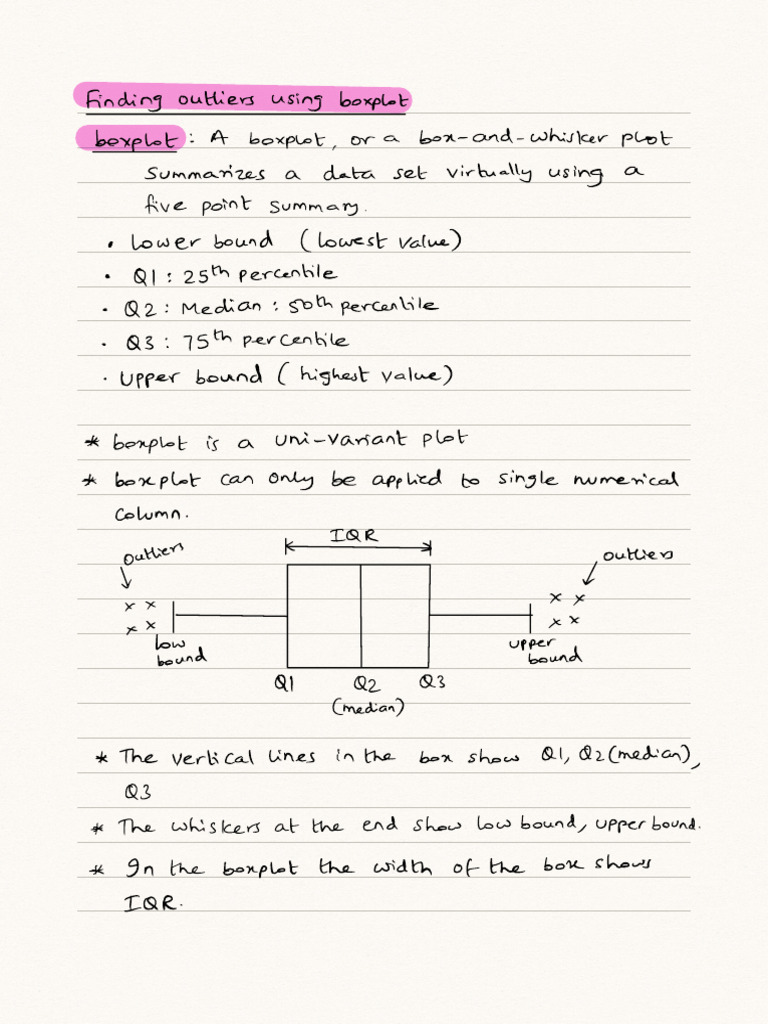 Finding outliers using boxplot
boxplot : A boxplot, or a box-and-whisker plot
summarizes a data set virtually using a
five point summary.
• lower bound (lowest value)
• Q1 : 25th percentile
• Q2 : Median : 50th percentile
• Q3 : 75th percentile
• upper bound ( highest value)
* boxplot is a uni-variant plot
* boxplot can only be applied to single numerical
column.
IQR
outliers
outliers
x x
x x
x x
x x
low
bound
upper
bound
Q1 Q2 Q3
(median)
* The vertical lines in the box show Q1, Q2(median),
Q3
* The whiskers at the end show low bound, upper bound.
* In the boxplot the width of the box shows
IQR.